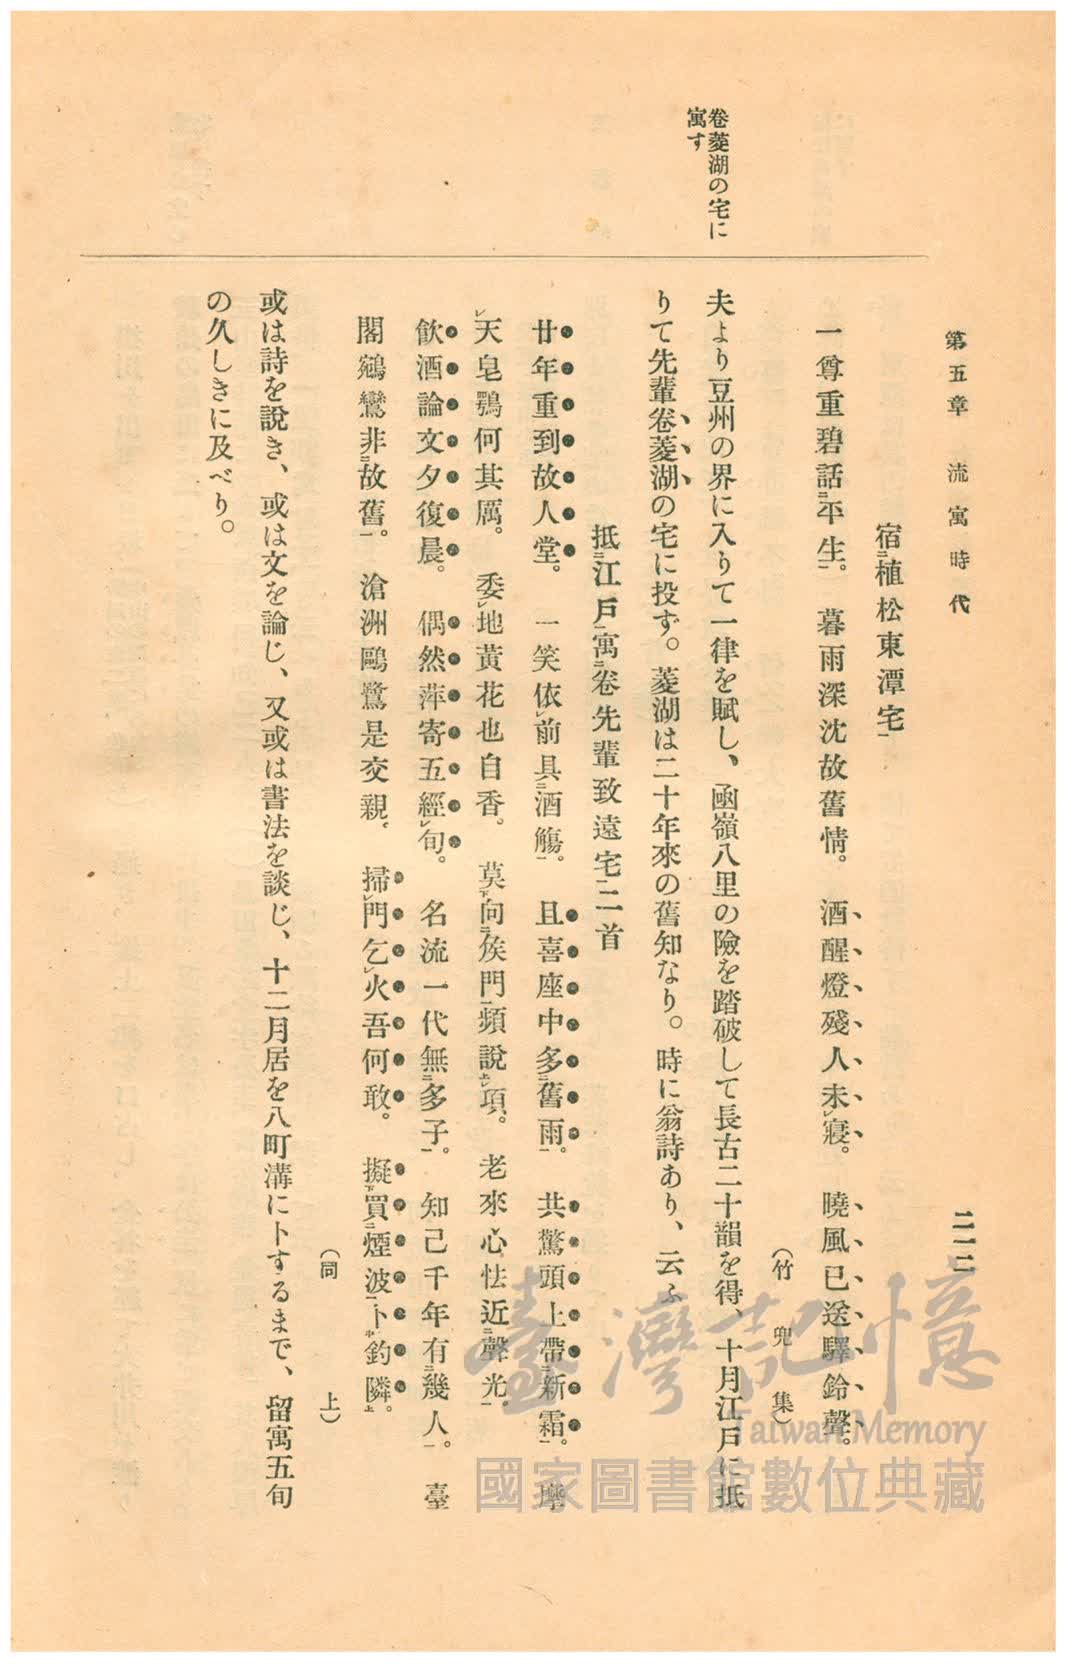 第五章 流寓時代
二一二
卷菱湖の宅に
寓す
宿ニ植松東潭宅一
一尊重碧話ニ平生一。暮雨深沈故舊情。酒醒燈殘人未レ寢。曉風已送驛鈴聲。
(竹兜集)
夫より豆州の界に入りて一律を賦し、函嶺八里の險を踏破して長古二十韻を得、十月江戸に抵
りて先輩卷菱湖の宅に投ず。菱湖は二十年來の舊知なり。時に翁詩あり、云ふ
抵ニ江戸一寓ニ卷先輩致遠宅一二首
廿年重到故人堂。一笑依レ前具ニ酒觴一。且喜座中多ニ舊雨一。共驚頭上帶ニ新霜一。摩
レ天皂鶚何其厲。委レ地黃花也自香。莫下向ニ侯門一頻說上レ項。老來心怯近ニ聲光一。
飮酒論文夕復晨。偶然萍寄五經レ旬。名流一代無ニ多子一。知己千年有ニ幾人一。臺
閣鵷鸞非ニ故舊一。滄洲鷗鷺是交親。掃レ門乞レ火吾何敢。擬下買ニ煙波一卜中釣隣上。
(同上)
或は詩を說き、或は文を論じ、又或は書法を談じ、十二月居を八町溝に卜するまで、留寓五旬
の久しきに及べり。
臺灣記憶
Taiwan Memory
國家圖書館數位典藏